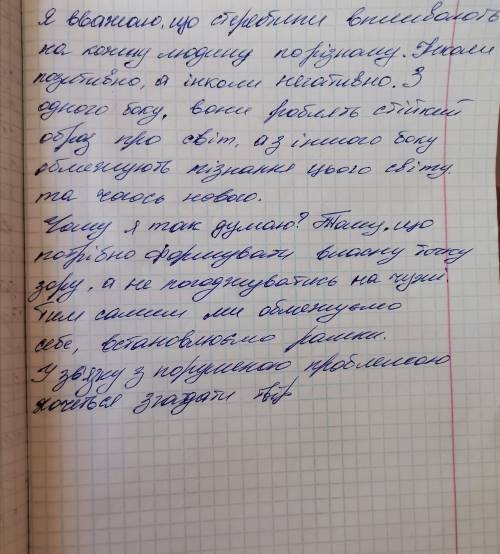 Я вважаю, що стереотипи впливають
на кожну людину по різному. Інколи
позитивно, а інколи негативно. З
одного боку, вони роблять стійкий
образ про світ, а з іншого боку
обмежують пізнання цього світу
та чогось нового.
Чому я так думаю? Тому, що
потрібно формувати власну точку
зору, а не погоджуватись на чужі.
Тим самим ми обмежуємо
себе, встановлюємо рамки.
У звязку з порушеною проблемою
хочеться згадати твір